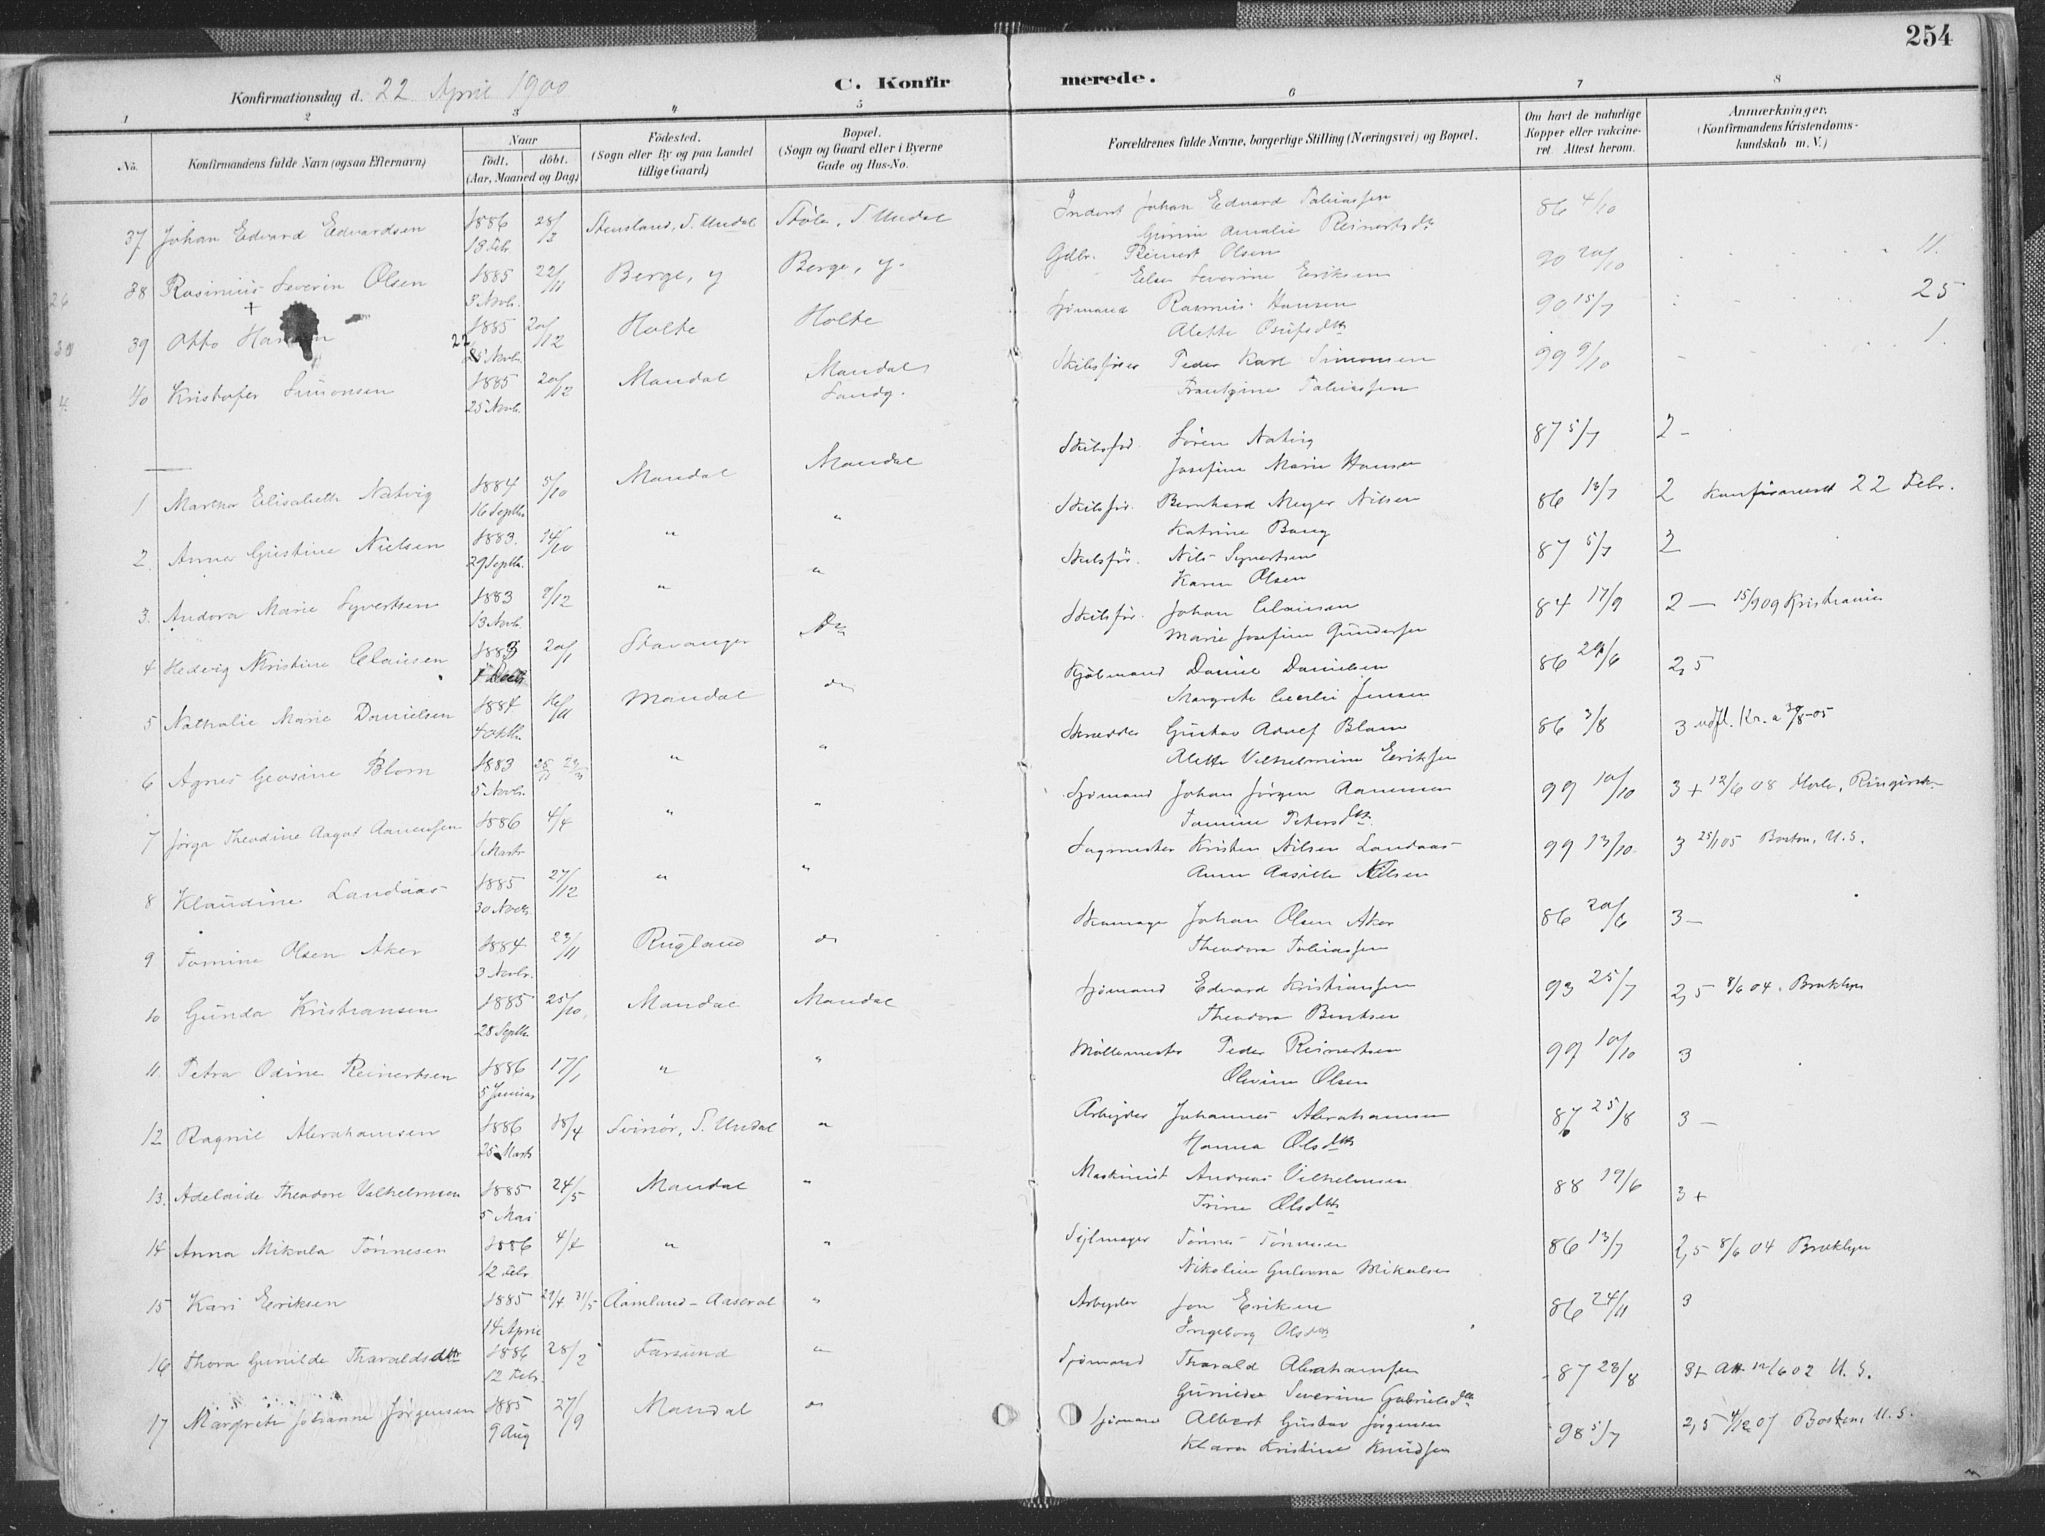 254
Konfirmationsdag d. 22 April 1900
C. Konfirmerede.
1 2 3 4 5 6 7 8
No.
Konfirmandens fulde Navn (ogsaa Efternavn)
Naar
födt. döbt.
(Aar, Maaned og Dag)
Födested.
(Sogn eller By og paa Landet
tillige Gaard)
Bopæl.
(Sogn og Gaard eller i Byerne
Gade og Hus-No.
Forældrenes fulde Navne, borgerlige Stilling (Næringsvei) og Bopæl.
Om havt de naturlige
Kopper eller vakcine-
ret. Attest herom.
Anmærkninger,
(Konfirmandens Kristendoms-
kundskab m. V.)
37 Johan Edvard Edvardsen 1886 28/3 Stensland, S. Undal Støle, S. Undal Johan Edvard Tobiassen 86 4/10
18 Febr. Gunni Amalie Reinertsdtr
38 Rasinius Severin Olsen 1885 22/11 Berge, y Berge, y. Gdbr. Reinert Olsen 90 20/10 11.
3 Novbr. Else Severine Eriksen
39 Otto Hansen 1885 20/12 Holte Holte Sjømand Rasmus Hansen 90 15/7 25
22 Novbr. Alette Osufsdtr
40 Kristofer Simonsen 1885 20/12 Mandal Mandal Skibsfører Peder Karl Simonsen 99 9/10 1.
25 Novbr. Sandg. Frantzine Tobiassen
1 Martha Elisabeth Natvig 1884 5/10 Mandal Mandal Skibsfør. Søren Natvig 87 5/7 2 -
16 Septbr. Josefine Marie Hansen
2. Anna Gustine Nielsen 1883. 14/10 " " Skibsfør. Bernhard Meyer Nilsen 86 13/7 2 Konfirmeret 22 Febr.
29 Septbr. Katrine Bang
3. Andora Marie Syvertsen 1883 9/12 " " Skibsfør. Nils Syvertsen 87 5/7 2
13 Novbr. Karen Olsen
4 Hedvig Kristine Clausen 1883 20/1 Stavanger do Skibsfør. Johan Clausen 84 17/9 2 - 15/9 09 Kristiania
Marie Josefine Gundersen
5 Nathalie Marie Danielsen 1884 16/11 Mandal do Kjøbmand Daniel Danielsen 86 29/6 2,5
4 Oktbr. Margrete Cecilie Jensen
6 Agnes Geosine Blom 1883 " " Skrædder Gustav Adolf Blom 86 3/8 3 udfl. Kr.a 30/8-05
5 Novbr. Alette Vilhelmine Eriksen
7 Jørga Theodine Aagot Aanensen 1886 4/4 " " Sjømand Johan Jørgen Aanensen 99 10/10 3 + 12/6 08
1 Marts Tomine Petersdtr.
8 Klaudine Landaas 1885 27/12 " " Sagmester Kristen Nilsen Landaas 99 13/10 3 25/1 05 Boston, U.S.
30 Novbr. Anne Aasille Nilsen
9 Tomine Olsen Aker 1884 23/11 Rugland do Skomager Johan Olsen Aker 86 20/6 3 -
3 Novbr. Theodora Tobiassen
10 Gunda Kristiansen 1885 25/10 Mandal Mandal Sjømand Edvard Kristiansen 93 25/7 2,5 8/6 04. Bruklyn
28 Septbr. Theodora Bentsen
11. Petra Odine Reinertsen 1886 17/1 " " Møllemester Peder Reinertsen 99 10/10 3
5 Januar Olevine Olsen
12 Ragnil Abrahamsen 1886 18/4 Svinør, S. Undal " Arbejder Johannes Abrahamsen 87 25/8 3 -
25 Marts Hanna Olsdtr
13. Adelaide Theodore Vilhelmsen 1885 24/5 Mandal " Maskinist Andreas Vilhelmsen 88 19/6 3 +
5 Mai Trine Olsdtr
14 Anna Mikala Tønnesen 1886 4/4 " " Sejlmager Tønnes Tønnesen 86 13/7 2,5 8/6 04 Bruklyn
12 Febr Nikoline Gulovna Mikalsen
15 Kari Eriksen 1885 Aamland - Aaseral " Arbejder Jon Eriksen 86 24/11 3
14 April Ingeborg Olsdtr
16 Thora Gunilde Tharaldsdtr 1886 28/2 Farsund " Sjømand Tharald Abrahamsen 87 28/8 3+ Att 12/6 02 U.S.
12 Febr. Gunilde Severine Gabrielsdtr
17 Margrete Johanne Jørgensen 1885 27/9 Mandal do Sjømand Albert Gustav Jørgensen 98 5/7 2,5 4/12 07 Boston, U.S.
9 Aug Klara Kristine Knudsen